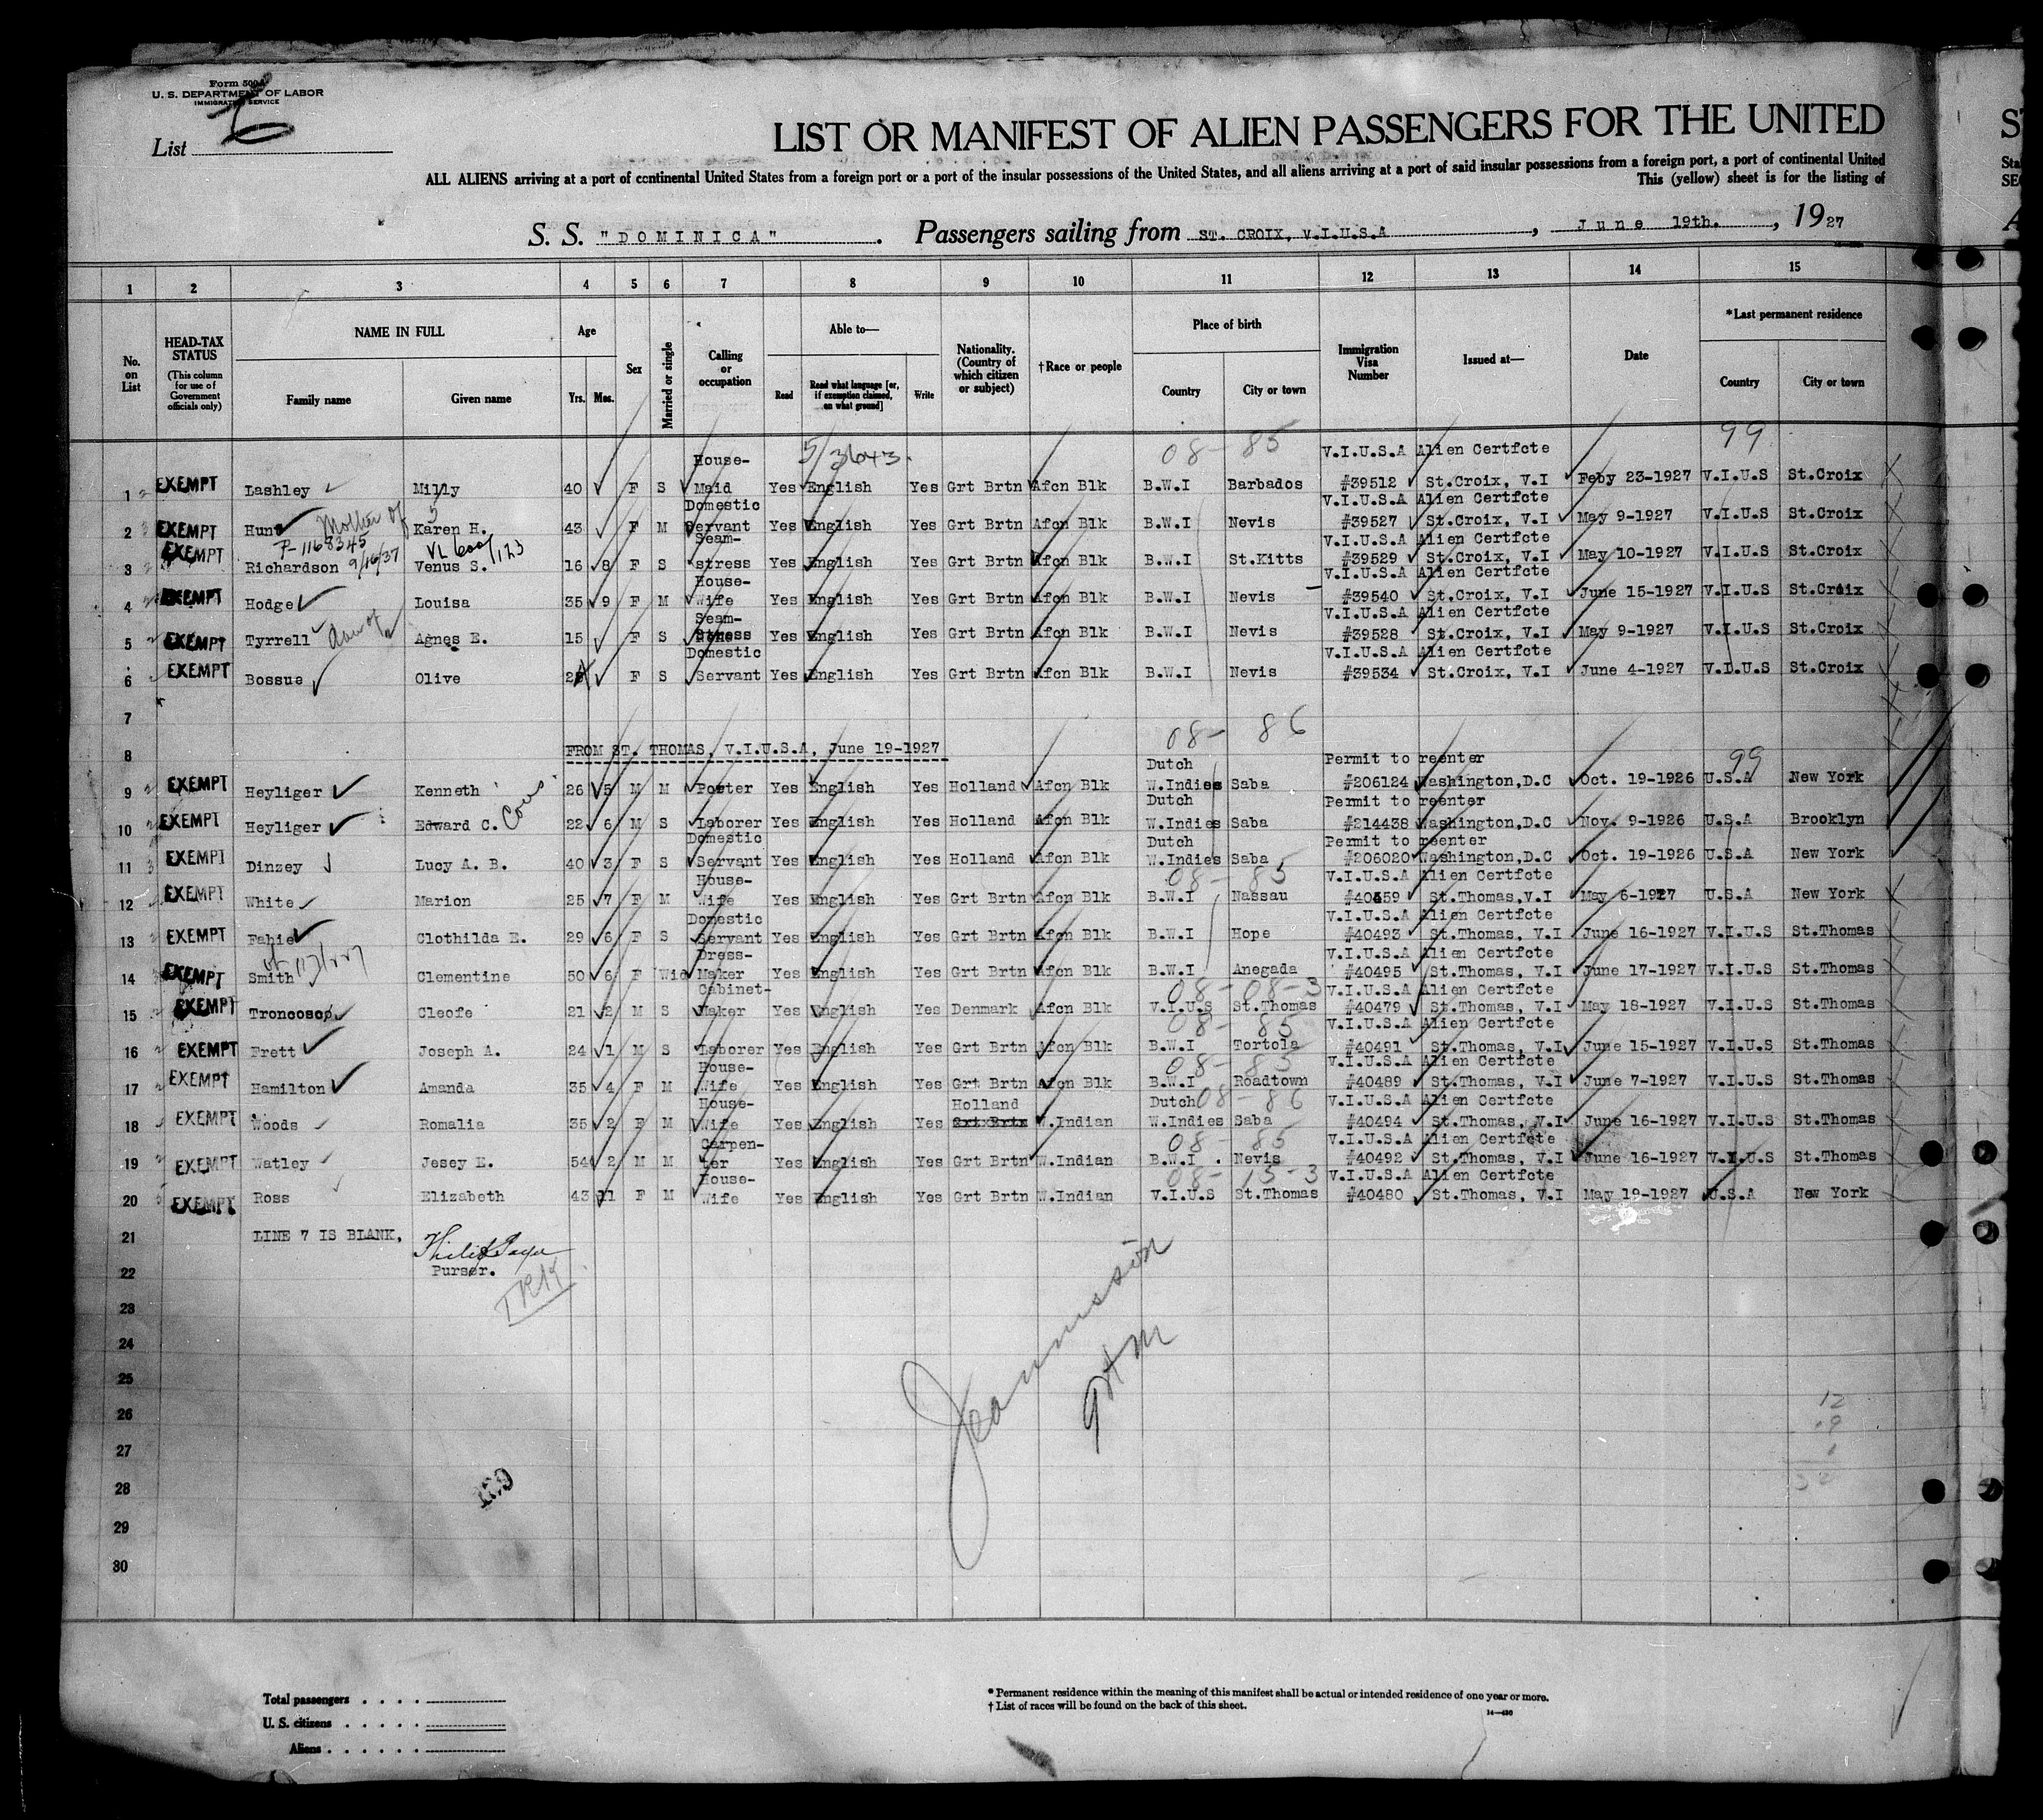 Form 500A
U. S. DEPARTMENT OF LABOR
IMMIGRATION SERVICE
List 6
LIST OR MANIFEST OF ALIEN PASSENGERS FOR THE UNITED
ALL ALIENS arriving at a port of continental United States from a foreign port or a port of the insular possessions of the United States, and all aliens arriving at a port of said insular possessions from a foreign port, a port of continental United
This (yellow) sheet is for the listing of
S. S. "DOMINICA" . Passengers sailing from ST. CROIX, V.I.U.S.A , June 19th. , 1927
1 2 3 4 5 6 7 8 9 10 11 12 13 14 15
No. on List
HEAD-TAX STATUS (This column for use of Government officials only)
NAME IN FULL Family name Given name
Age Yrs. Mos.
Sex
Married or single
Calling or occupation
Able to— Read Read what language [or, if exemption claimed, on what ground] Write
Nationality. (Country of which citizen or subject)
†Race or people
Place of birth Country City or town
Immigration Visa Number
Issued at—
Date
*Last permanent residence Country City or town
5/3643. 08- 85 99
1 EXEMPT Lashley Milly 40 F S House-Maid Yes English Yes Grt Brtn Afcn Blk B.W.I Barbados V.I.U.S.A Alien Certfcte #39512 St.Croix, V.I Feby 23-1927 V.I.U.S St.Croix
2 EXEMPT Hunt Mother of 5 Karen H. 43 F M Domestic Servant Yes English Yes Grt Brtn Afcn Blk B.W.I Nevis V.I.U.S.A Alien Certfcte #39527 St.Croix, V.I May 9-1927 V.I.U.S St.Croix
P-1168345 VL 600/123
3 EXEMPT Richardson 9/16/37 Venus S. 16 8 F S Seam-stress Yes English Yes Grt Brtn Afcn Blk B.W.I St.Kitts V.I.U.S.A Alien Certfcte #39529 St.Croix, V.I May 10-1927 V.I.U.S St.Croix
4 EXEMPT Hodge Louisa 35 9 F M House-Wife Yes English Yes Grt Brtn Afcn Blk B.W.I Nevis V.I.U.S.A Alien Certfcte #39540 St.Croix, V.I June 15-1927 V.I.U.S St.Croix
5 EXEMPT Tyrrell dau of 2 Agnes E. 15 F S Seam-Stress Yes English Yes Grt Brtn Afcn Blk B.W.I Nevis V.I.U.S.A Alien Certfcte #39528 St.Croix, V.I May 9-1927 V.I.U.S St.Croix
6 EXEMPT Bossue Olive F S Domestic Servant Yes English Yes Grt Brtn Afcn Blk B.W.I Nevis V.I.U.S.A Alien Certfcte #39534 St.Croix, V.I June 4-1927 V.I.U.S St.Croix
7
08- 86
8 FROM ST. THOMAS, V.I.U.S.A, June 19-1927
99
9 EXEMPT Heyliger Kenneth 26 5 M M Porter Yes English Yes Holland Afcn Blk Dutch W.Indies Saba Permit to reenter #206124 Washington,D.C Oct. 19-1926 U.S.A New York
10 EXEMPT Heyliger Edward C. Cous. 22 6 M S Laborer Yes English Yes Holland Afcn Blk Dutch W.Indies Saba Permit to reenter #214438 Washington,D.C Nov. 9-1926 U.S.A Brooklyn
11 EXEMPT Dinzey Lucy A. B. 40 3 F S Domestic Servant Yes English Yes Holland Afcn Blk Dutch W.Indies Saba Permit to reenter #206020 Washington,D.C Oct. 19-1926 U.S.A New York
08- 85
12 EXEMPT White Marion 25 7 F M House-Wife Yes English Yes Grt Brtn Afcn Blk B.W.I Nassau V.I.U.S.A Alien Certfcte #40459 St.Thomas,V.I May 6-1927 U.S.A New York
13 EXEMPT Fahie Clothilda E. 29 6 F S Domestic Servant Yes English Yes Grt Brtn Afcn Blk B.W.I Hope V.I.U.S.A Alien Certfcte #40493 St.Thomas, V.I June 16-1927 V.I.U.S St.Thomas
14 EXEMPT Smith Clementine 50 6 F Wid Dress-Maker Yes English Yes Grt Brtn Afcn Blk B.W.I Anegada V.I.U.S.A Alien Certfcte #40495 St.Thomas, V.I June 17-1927 V.I.U.S St.Thomas
08- 08-3
15 EXEMPT Troncoso Cleofe 21 2 M S Cabinet-Maker Yes English Yes Denmark Afcn Blk V.I.U.S St.Thomas V.I.U.S.A Alien Certfcte #40479 St.Thomas, V.I May 18-1927 V.I.U.S St.Thomas
08- 85
16 EXEMPT Frett Joseph A. 24 1 M S Laborer Yes English Yes Grt Brtn Afcn Blk B.W.I Tortola V.I.U.S.A Alien Certfcte #40491 St.Thomas, V.I June 15-1927 V.I.U.S St.Thomas
08- 85
17 EXEMPT Hamilton Amanda 35 4 F M House-Wife Yes English Yes Grt Brtn Afcn Blk B.W.I Roadtown V.I.U.S.A Alien Certfcte #40489 St.Thomas, V.I June 7-1927 V.I.U.S St.Thomas
08- 86
18 EXEMPT Woods Romalia 35 2 F M House-Wife Yes English Yes Holland Grt Brtn W.Indian Dutch W.Indies Saba V.I.U.S.A Alien Certfcte #40494 St.Thomas, V.I June 16-1927 V.I.U.S St.Thomas
08- 85
19 EXEMPT Watley Jesey E. 54 2 M M Carpen-ter Yes English Yes Grt Brtn W.Indian B.W.I. Nevis V.I.U.S.A Alien Certfcte #40492 St.Thomas, V.I June 16-1927 V.I.U.S St.Thomas
08- 15-3
20 EXEMPT Ross Elizabeth 43 11 F M House-Wife Yes English Yes Grt Brtn W.Indian V.I.U.S St.Thomas V.I.U.S.A Alien Certfcte #40480 St.Thomas, V.I May 19-1927 U.S.A New York
21 LINE 7 IS BLANK,
22 Purser.
23
24
25
26
27
28
29
30
Total passengers
U. S. citizens
Aliens
* Permanent residence within the meaning of this manifest shall be actual or intended residence of one year or more.
† List of races will be found on the back of this sheet.
14—430